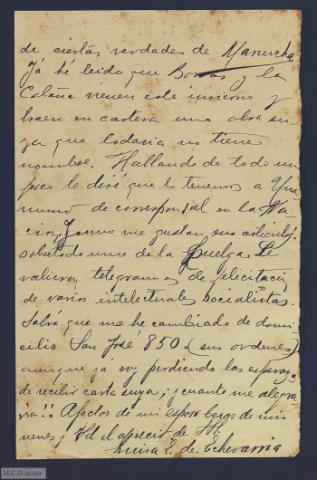 de ciertas verdades de Marucha
Já hé leido que Borrás y la
Cobeña vienen este invierno y
traen en cartera una obra su-
ya que todavia no tiene
nombre. Hablando de todo un
poco le diré que lo tenemos a Una
muno de corresponsal en la Na
ción, y me gustan sus articulos
sobretodo uno de la Huelga. Le
valieron telegramas de felicitación
de varios intelectuales socialistas.
Sabrá que me he cambiado de domi
cilio San José 850 (sus ordenes)
aunque ya voy perdiendo las esperanzas
de recibir carta suya; ¡y cuanto me alegra
ria!! Afectos de mi esposo besos de mis
nenes y Vd el aprecio de
Luisa E. de Echevarria
M.C.D.2020